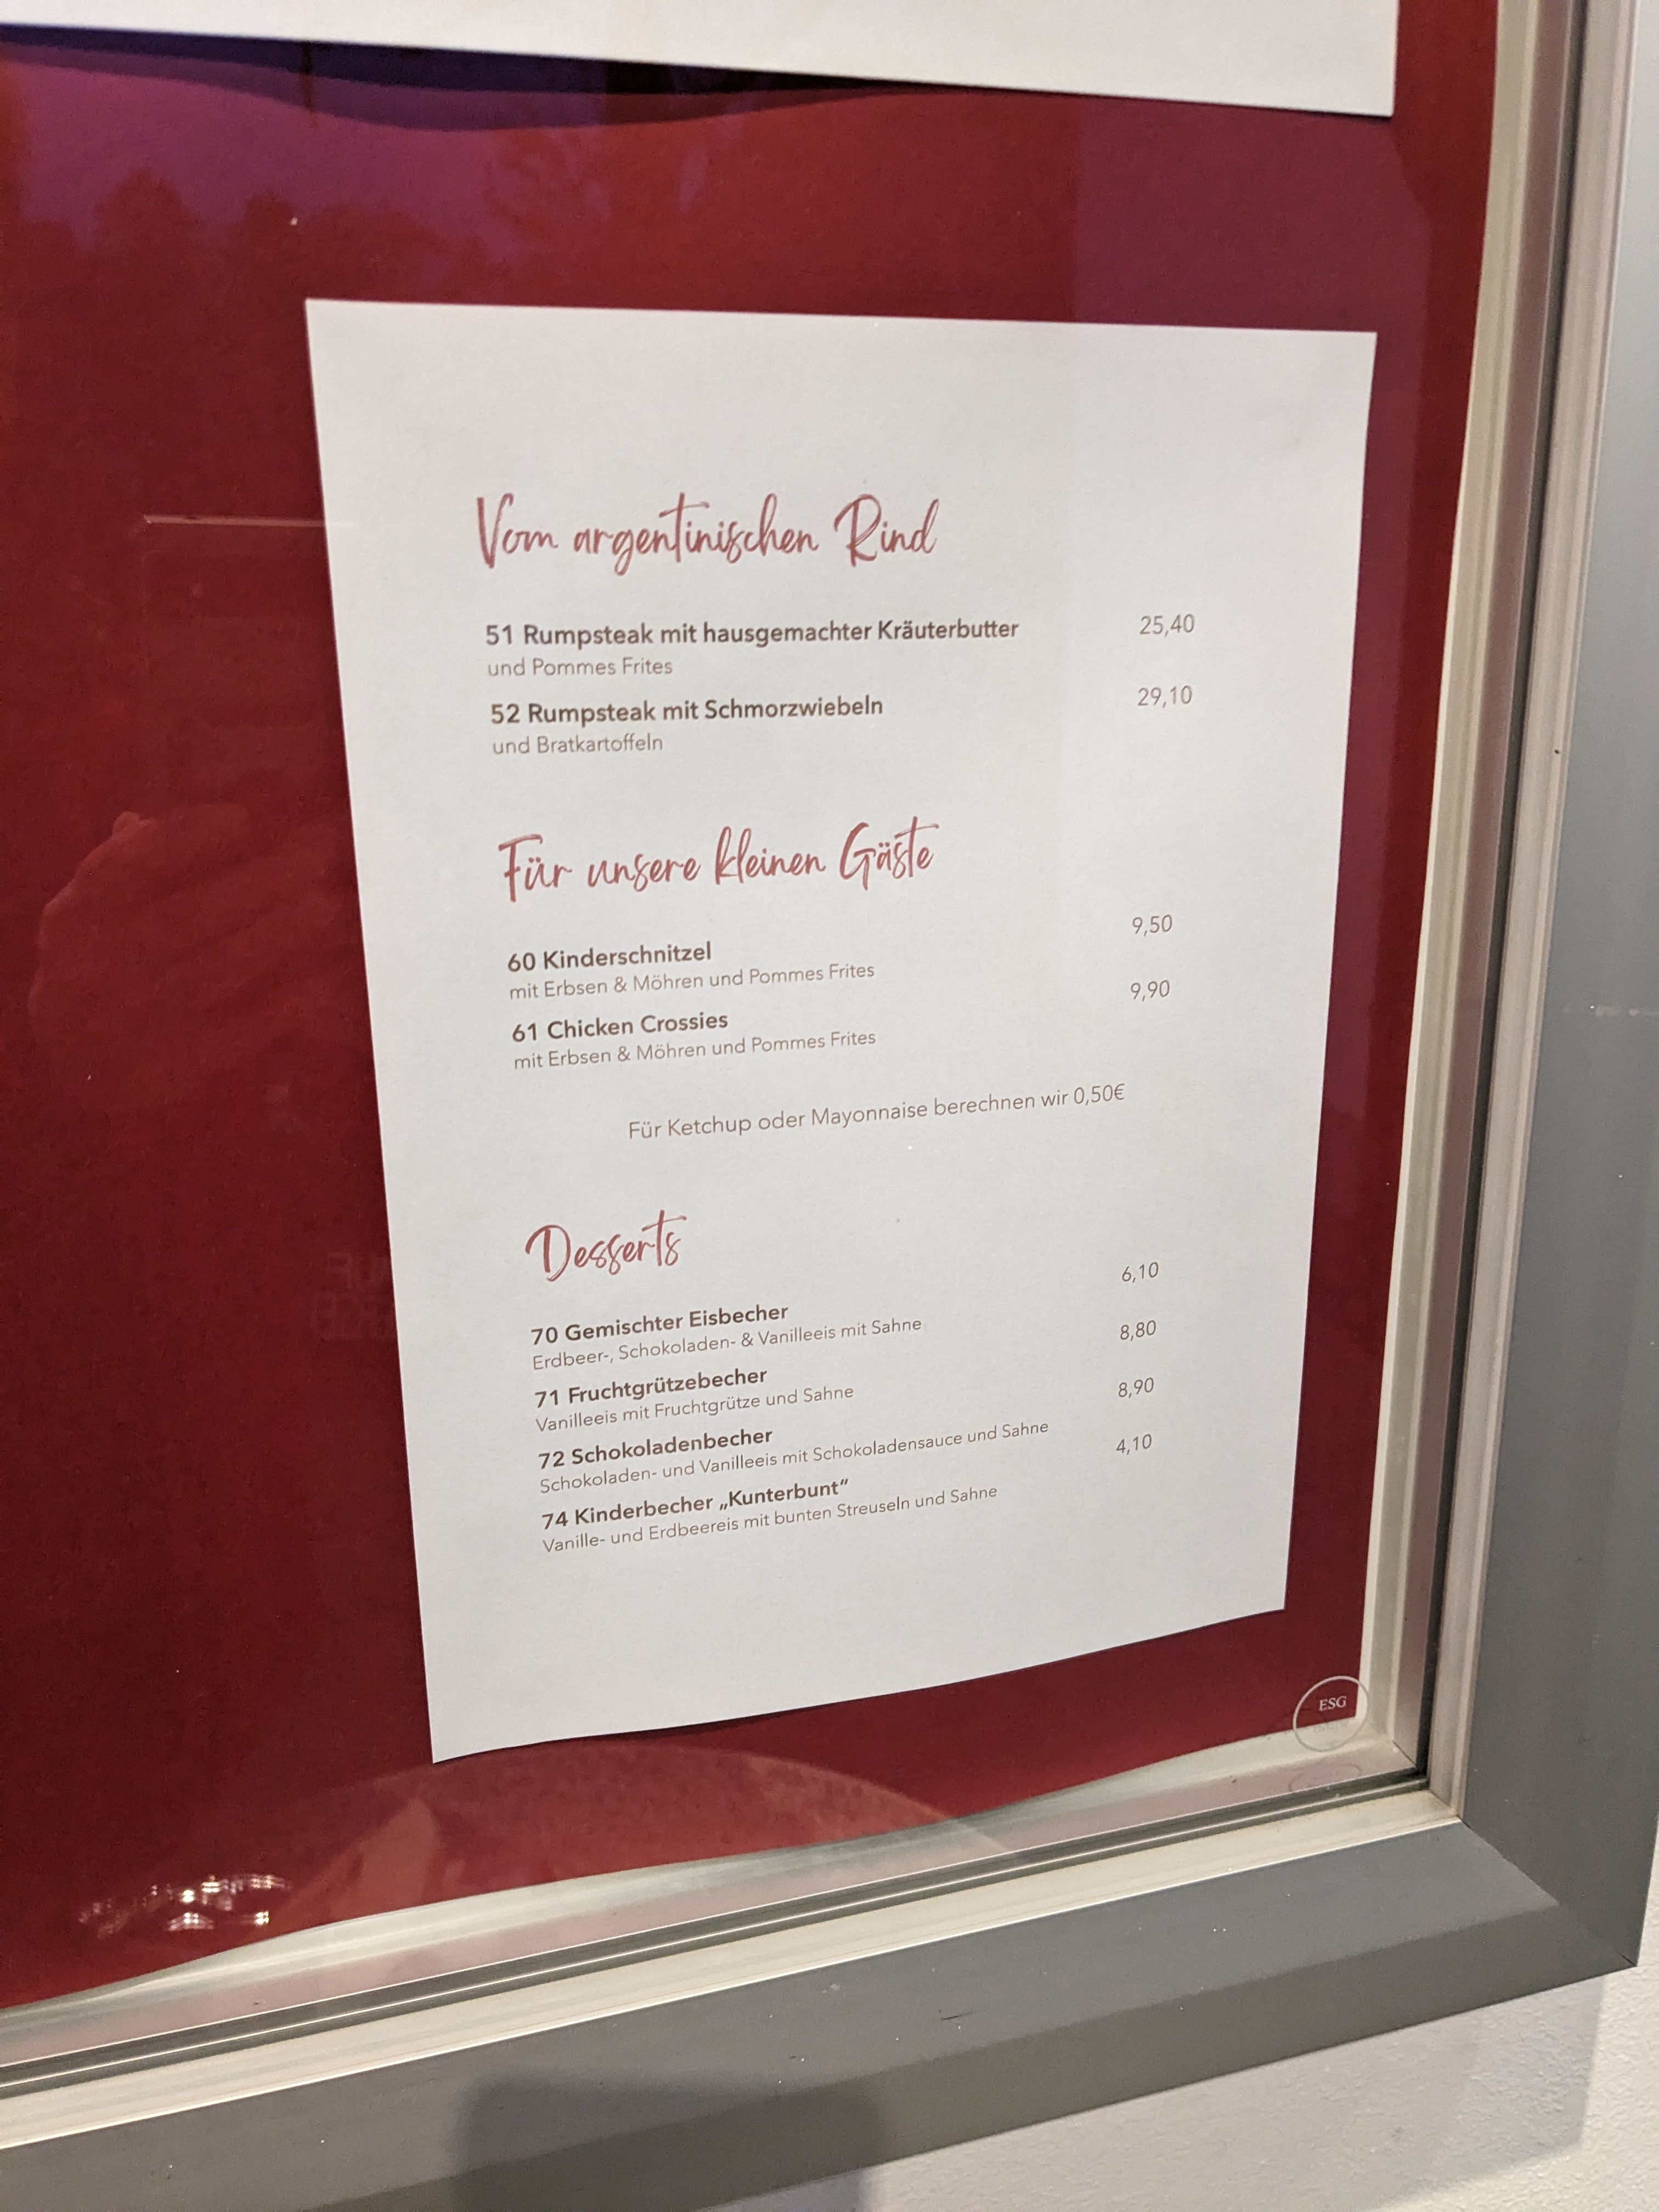 Vom argentinischen Rind
51 Rumpsteak mit hausgemachter Kräuterbutter 25,40
und Pommes Frites
52 Rumpsteak mit Schmorzwiebeln 29,10
und Bratkartoffeln
Für unsere kleinen Gäste
60 Kinderschnitzel 9,50
mit Erbsen & Möhren und Pommes Frites
61 Chicken Crossies 9,90
mit Erbsen & Möhren und Pommes Frites
Für Ketchup oder Mayonnaise berechnen wir 0,50€
Desserts
70 Gemischter Eisbecher 6,10
Erdbeer-, Schokoladen- & Vanilleeis mit Sahne
71 Fruchtgrützebecher 8,80
Vanilleeis mit Fruchtgrütze und Sahne
72 Schokoladenbecher 8,90
Schokoladen- und Vanilleeis mit Schokoladensauce und Sahne
74 Kinderbecher „Kunterbunt“ 4,10
Vanille- und Erdbeereis mit bunten Streuseln und Sahne
ESG